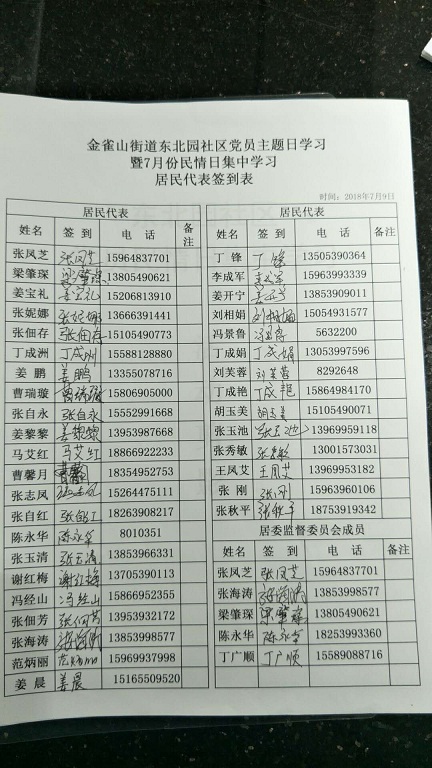 金雀山街道东北园社区党员主题日学习
暨7月份民情日集中学习
居民代表签到表
时间：2018年7月9日
居民代表
姓名 签到 电话 备注
张凤芝 张凤芝 15964837701
梁肇琛 梁肇琛 13805490621
姜宝礼 姜宝礼 15206813910
张妮娜 张妮娜 13666391441
张佃存 张佃存 15105490773
丁成洲 丁成洲 15588128880
姜鹏 姜鹏 13355078716
曹瑞璇 曹瑞璇 15806905000
张自永 张自永 15552991668
姜黎黎 姜黎黎 13953987668
马艾红 马艾红 18866922233
曹馨月 18354952753
张志凤 15264475111
张自红 张自红 18263908217
陈永华 陈永华 8010351
张玉清 张玉清 13853966331
谢红梅 谢红梅 13705390113
冯经山 冯经山 15866952355
张佃芳 张佃芳 13953932172
张海涛 张海涛 13853998577
范炳丽 15969937998
姜晨 姜晨 15165509520
居民代表
姓名 签到 电话 备注
丁锋 丁锋 13505390364
李成军 李成军 15963993339
姜开宁 13853909011
刘相娟 刘相娟 15054931577
冯景鲁 冯景鲁 5632200
丁成娟 丁成娟 13053997596
刘芙蓉 刘芙蓉 8292648
丁成艳 丁成艳 15864984170
胡玉美 胡玉美 15105490071
张玉池 张玉池 13969959118
张秀敏 张秀敏 13001573031
王凤艾 王凤艾 13969953182
张刚 张刚 15963960106
张秋平 18753919342
居委监督委员会成员
姓名 签到 电话 备注
张凤芝 张凤芝 15964837701
张海涛 张海涛 13853998577
梁肇琛 梁肇琛 13805490621
陈永华 陈永华 18253993360
丁广顺 丁广顺 15589088716